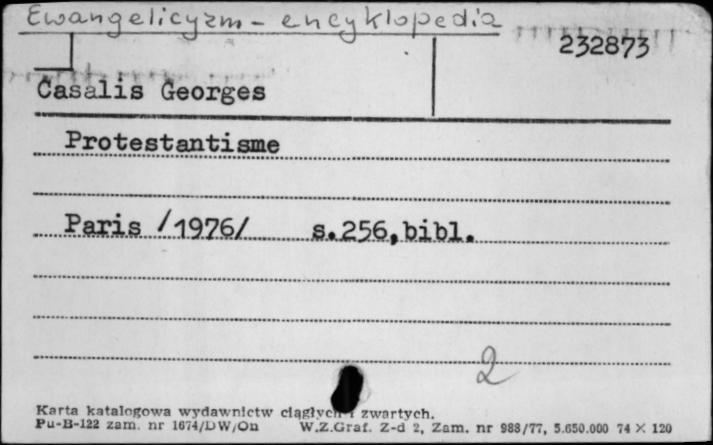 Ewangelicyzm - encyklopedia
232873
Casalis Georges
Protestantisme
Paris /1976/ s.256,bibl.
2
Karta katalogowa wydawnictw ciągłych i zwartych.
Pu-B-122 zam. nr 1674/DW/On W.Z.Graf. Z-d 2, Zam. nr 988/77, 5.650.000 74 X 120